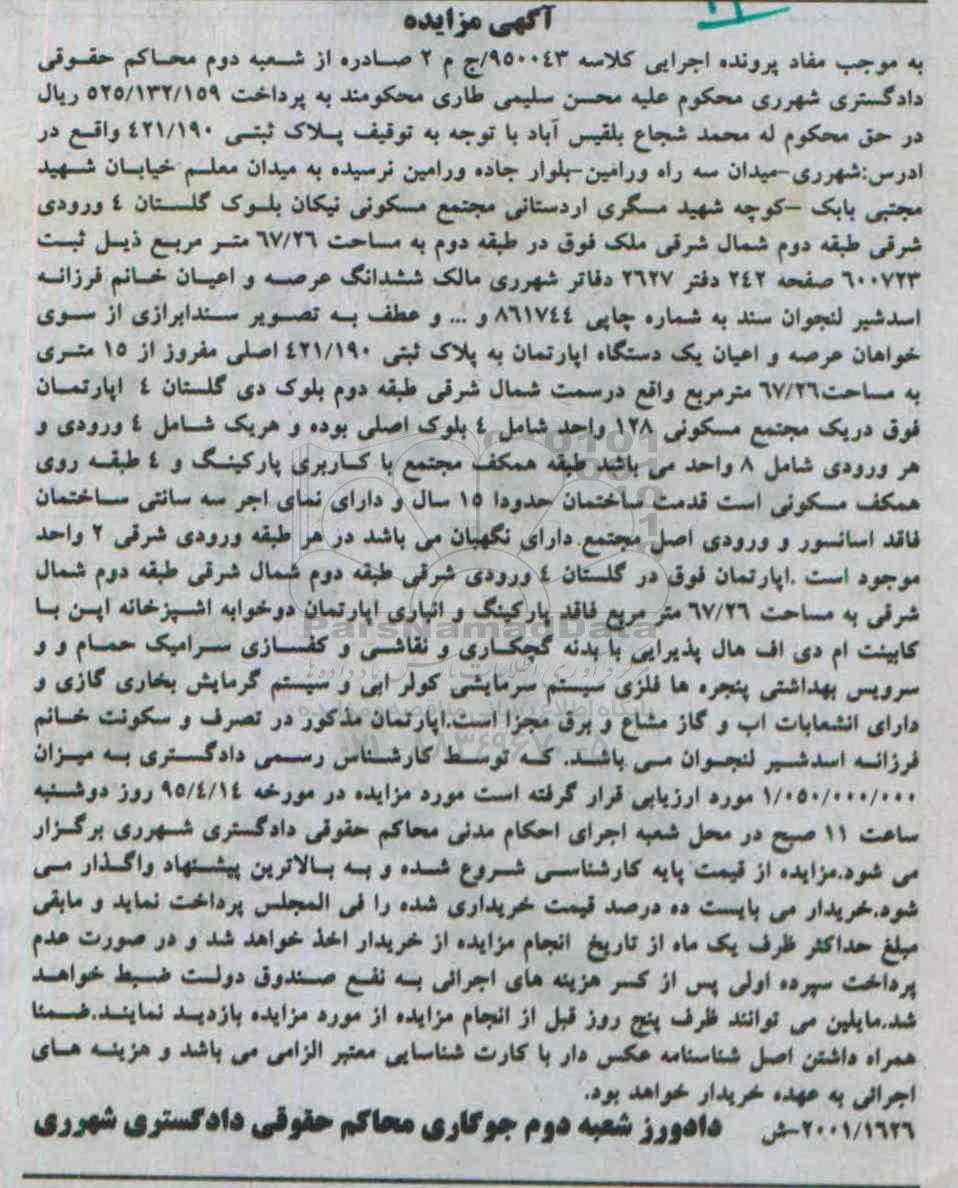 آگهی مزایده
به موجب مفاد پرونده اجرایی کلاسه ۹۵۰۰۴۳/ج م ۲ صادره از شعبه دوم محاکم حقوقی
دادگستری شهرری محکوم علیه محسن سلیمی طاری محکومند به پرداخت ۵۲۵/۱۳۲/۱۵۹ ریال
در حق محکوم له محمد شجاع بلقیس آباد با توجه به توقیف پلاک ثبتی ۴۲۱/۱۹۰ واقع در
ادرس:شهرری-میدان سه راه ورامین-بلوار جاده ورامین نرسیده به میدان معلم خیابان شهید
مجتبی بابک -کوچه شهید مسگری اردستانی مجتمع مسکونی نیکان بلوک گلستان ۴ ورودی
شرقی طبقه دوم شمال شرقی ملک فوق در طبقه دوم به مساحت ۶۷/۲۶ متر مربع ذیل ثبت
۶۰۰۷۲۳ صفحه ۲۴۲ دفتر ۲۶۲۷ دفاتر شهرری مالک ششدانگ عرصه و اعیان خانم فرزانه
اسدشیر لنجوان سند به شماره چاپی ۸۶۱۷۴۴ و ... و عطف به تصویر سندابرازی از سوی
خواهان عرصه و اعیان یک دستگاه اپارتمان به پلاک ثبتی ۴۲۱/۱۹۰ اصلی مفروز از ۱۵ متری
به مساحت۶۷/۲۶ مترمربع واقع درسمت شمال شرقی طبقه دوم بلوک دی گلستان ۴ اپارتمان
فوق دریک مجتمع مسکونی ۱۲۸ واحد شامل ۴ بلوک اصلی بوده و هریک شامل ۴ ورودی و
هر ورودی شامل ۸ واحد می باشد طبقه همکف مجتمع با کاربری پارکینگ و ۴ طبقه روی
همکف مسکونی است قدمت ساختمان حدودا ۱۵ سال و دارای نمای اجر سه سانتی ساختمان
فاقد اسانسور و ورودی اصل مجتمع.دارای نگهبان می باشد در هر طبقه ورودی شرقی ۲ واحد
موجود است .اپارتمان فوق در گلستان ۴ ورودی شرقی طبقه دوم شمال شرقی طبقه دوم شمال
شرقی به مساحت ۶۷/۲۶ متر مربع فاقد پارکینگ و انباری اپارتمان دوخوابه اشپزخانه اپن با
کابینت ام دی اف هال پذیرایی با بدنه گچکاری و نقاشی و کفسازی سرامیک حمام و و
سرویس بهداشتی پنجره ها فلزی سیستم سرمایشی کولر ابی و سیستم گرمایش بخاری گازی و
دارای انشعابات اب و گاز مشاع و برق مجزا است.اپارتمان مذکور در تصرف و سکونت خانم
فرزانه اسدشیر لنجوان می باشد. که توسط کارشناس رسمی دادگستری به میزان
۱/۰۵۰/۰۰۰/۰۰۰ مورد ارزیابی قرار گرفته است مورد مزایده در مورخه ۹۵/۴/۱۴ روز دوشنبه
ساعت ۱۱ صبح در محل شعبه اجرای احکام مدنی محاکم حقوقی دادگستری شهرری برگزار
می شود.مزایده از قیمت پایه کارشناسی شروع شده و به بالاترین پیشنهاد واگذار می
شود.خریدار می بایست ده درصد قیمت خریداری شده را فی المجلس پرداخت نماید و مابقی
مبلغ حداکثر ظرف یک ماه از تاریخ انجام مزایده از خریدار اخذ خواهد شد و در صورت عدم
پرداخت سپرده اولی پس از کسر هزینه های اجرائی به نفع صندوق دولت ضبط خواهد
شد.مایلین می توانند ظرف پنج روز قبل از انجام مزایده از مورد مزایده بازدید نمایند.ضمنا
همراه داشتن اصل شناسنامه عکس دار با کارت شناسایی معتبر الزامی می باشد و هزینه های
اجرائی به عهده خریدار خواهد بود.
۲۰۰۱/۱۶۲۶-ش دادورز شعبه دوم جوگاری محاکم حقوقی دادگستری شهرری
ParsNamadData